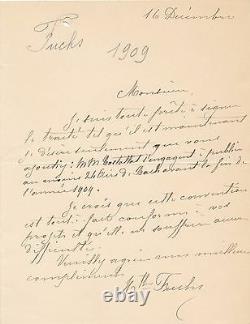 16 Décembre
Fuchs
1909
Monsieur,
Je suis tout prêt à signer
le traité tel qu'il est maintenant
je désire seulement que vous
ajoutiez: MM s'engagent à publier
au moins 24 de Bach avant la fin de
l'année 1909.
Je crois que cette convention
est tout à fait conforme à vos
projets et qu'elle ne souffrira aucune
difficulté.
Veuillez agréer mes meilleurs
compliments
Fuchs